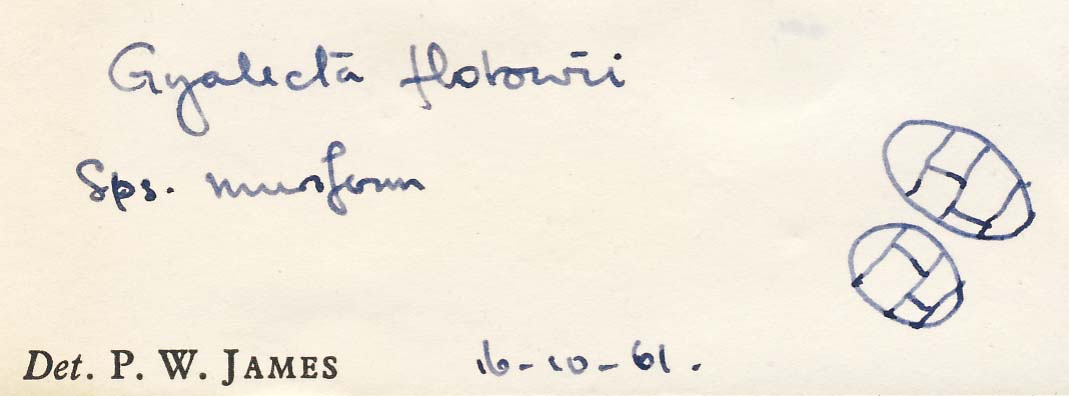 Gyalecta flotowii
Sps. muriform
Det. P. W. JAMES 16-10-61.